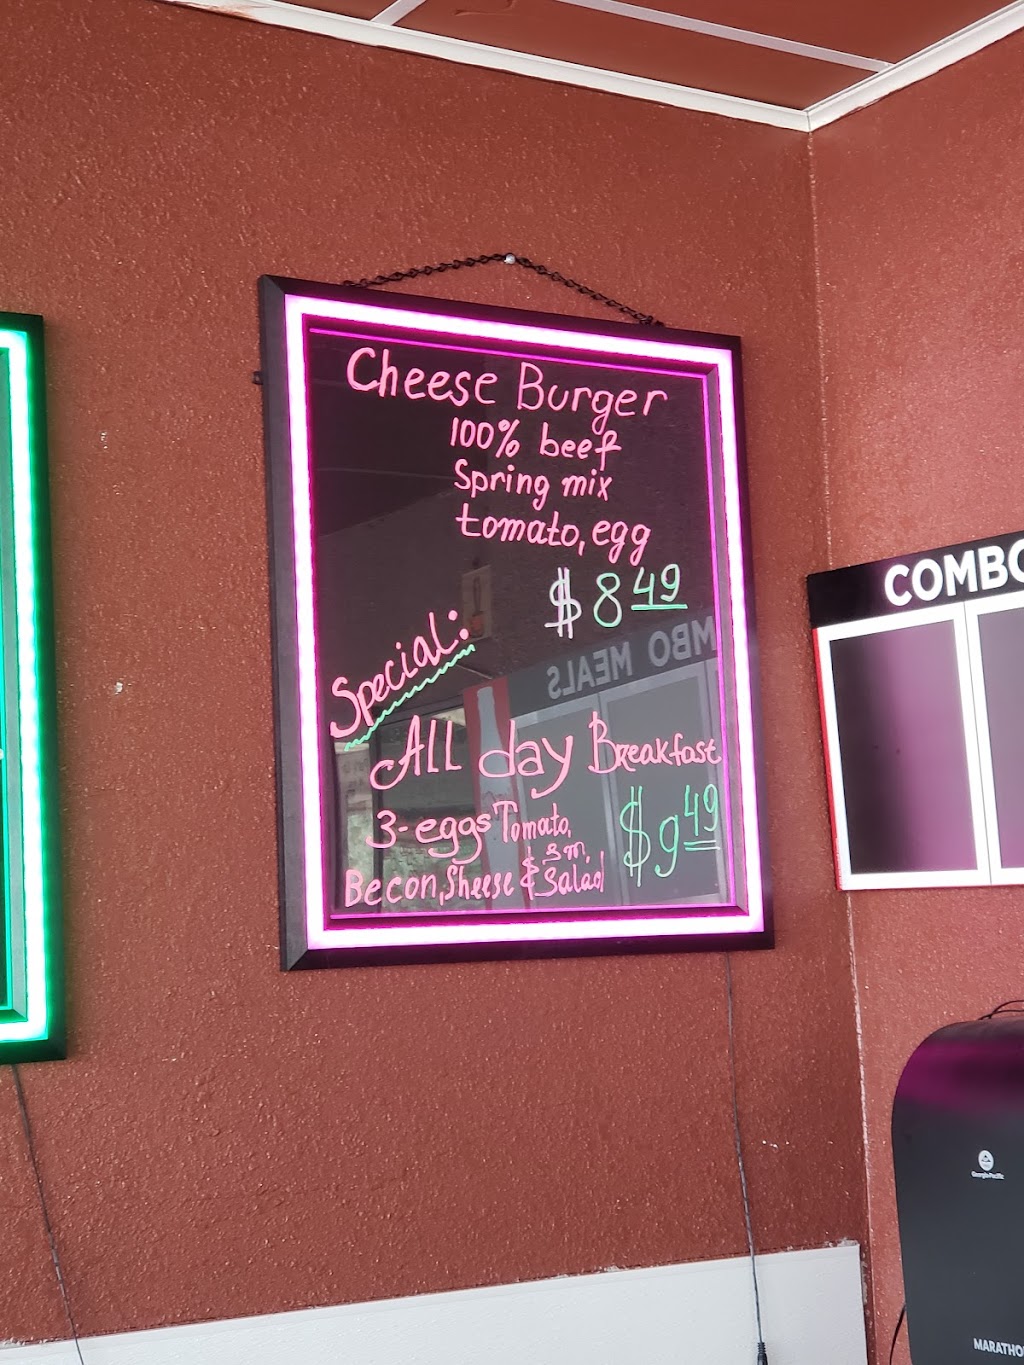 Cheese Burger
100% beef
Spring mix
tomato, egg
$8 49
Special:
All day Breakfast
3-eggs Tomato,
sm.
Becon, Sheese & Salad
$9 49
COMBO
MBO MEALS
Georgia-Pacific
MARATHO